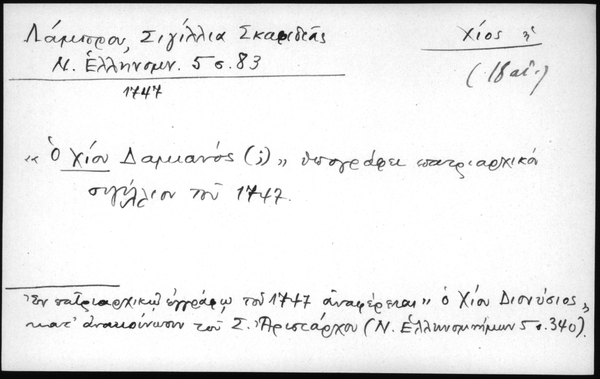 Λάμπρου, Σιγίλλια Σκαριδιᾶς
Χίος
Ν. Ἑλληνομν. 5 σ. 83
(18 αἰ.)
1747
"Ὁ Χίου Δαμιανός (;)" ὑπογράφει πατριαρχικόν
σιγίλλιον τοῦ 1747.
Ἐν πατριαρχικῷ ἐγγράφῳ τοῦ 1747 ἀναφέρεται "ὁ Χίου Διονύσιος"
κατ' ἀνακοίνωσιν τοῦ Σ. Ἀριστάρχου (Ν. Ἑλληνομνήμων 5 σ. 340).